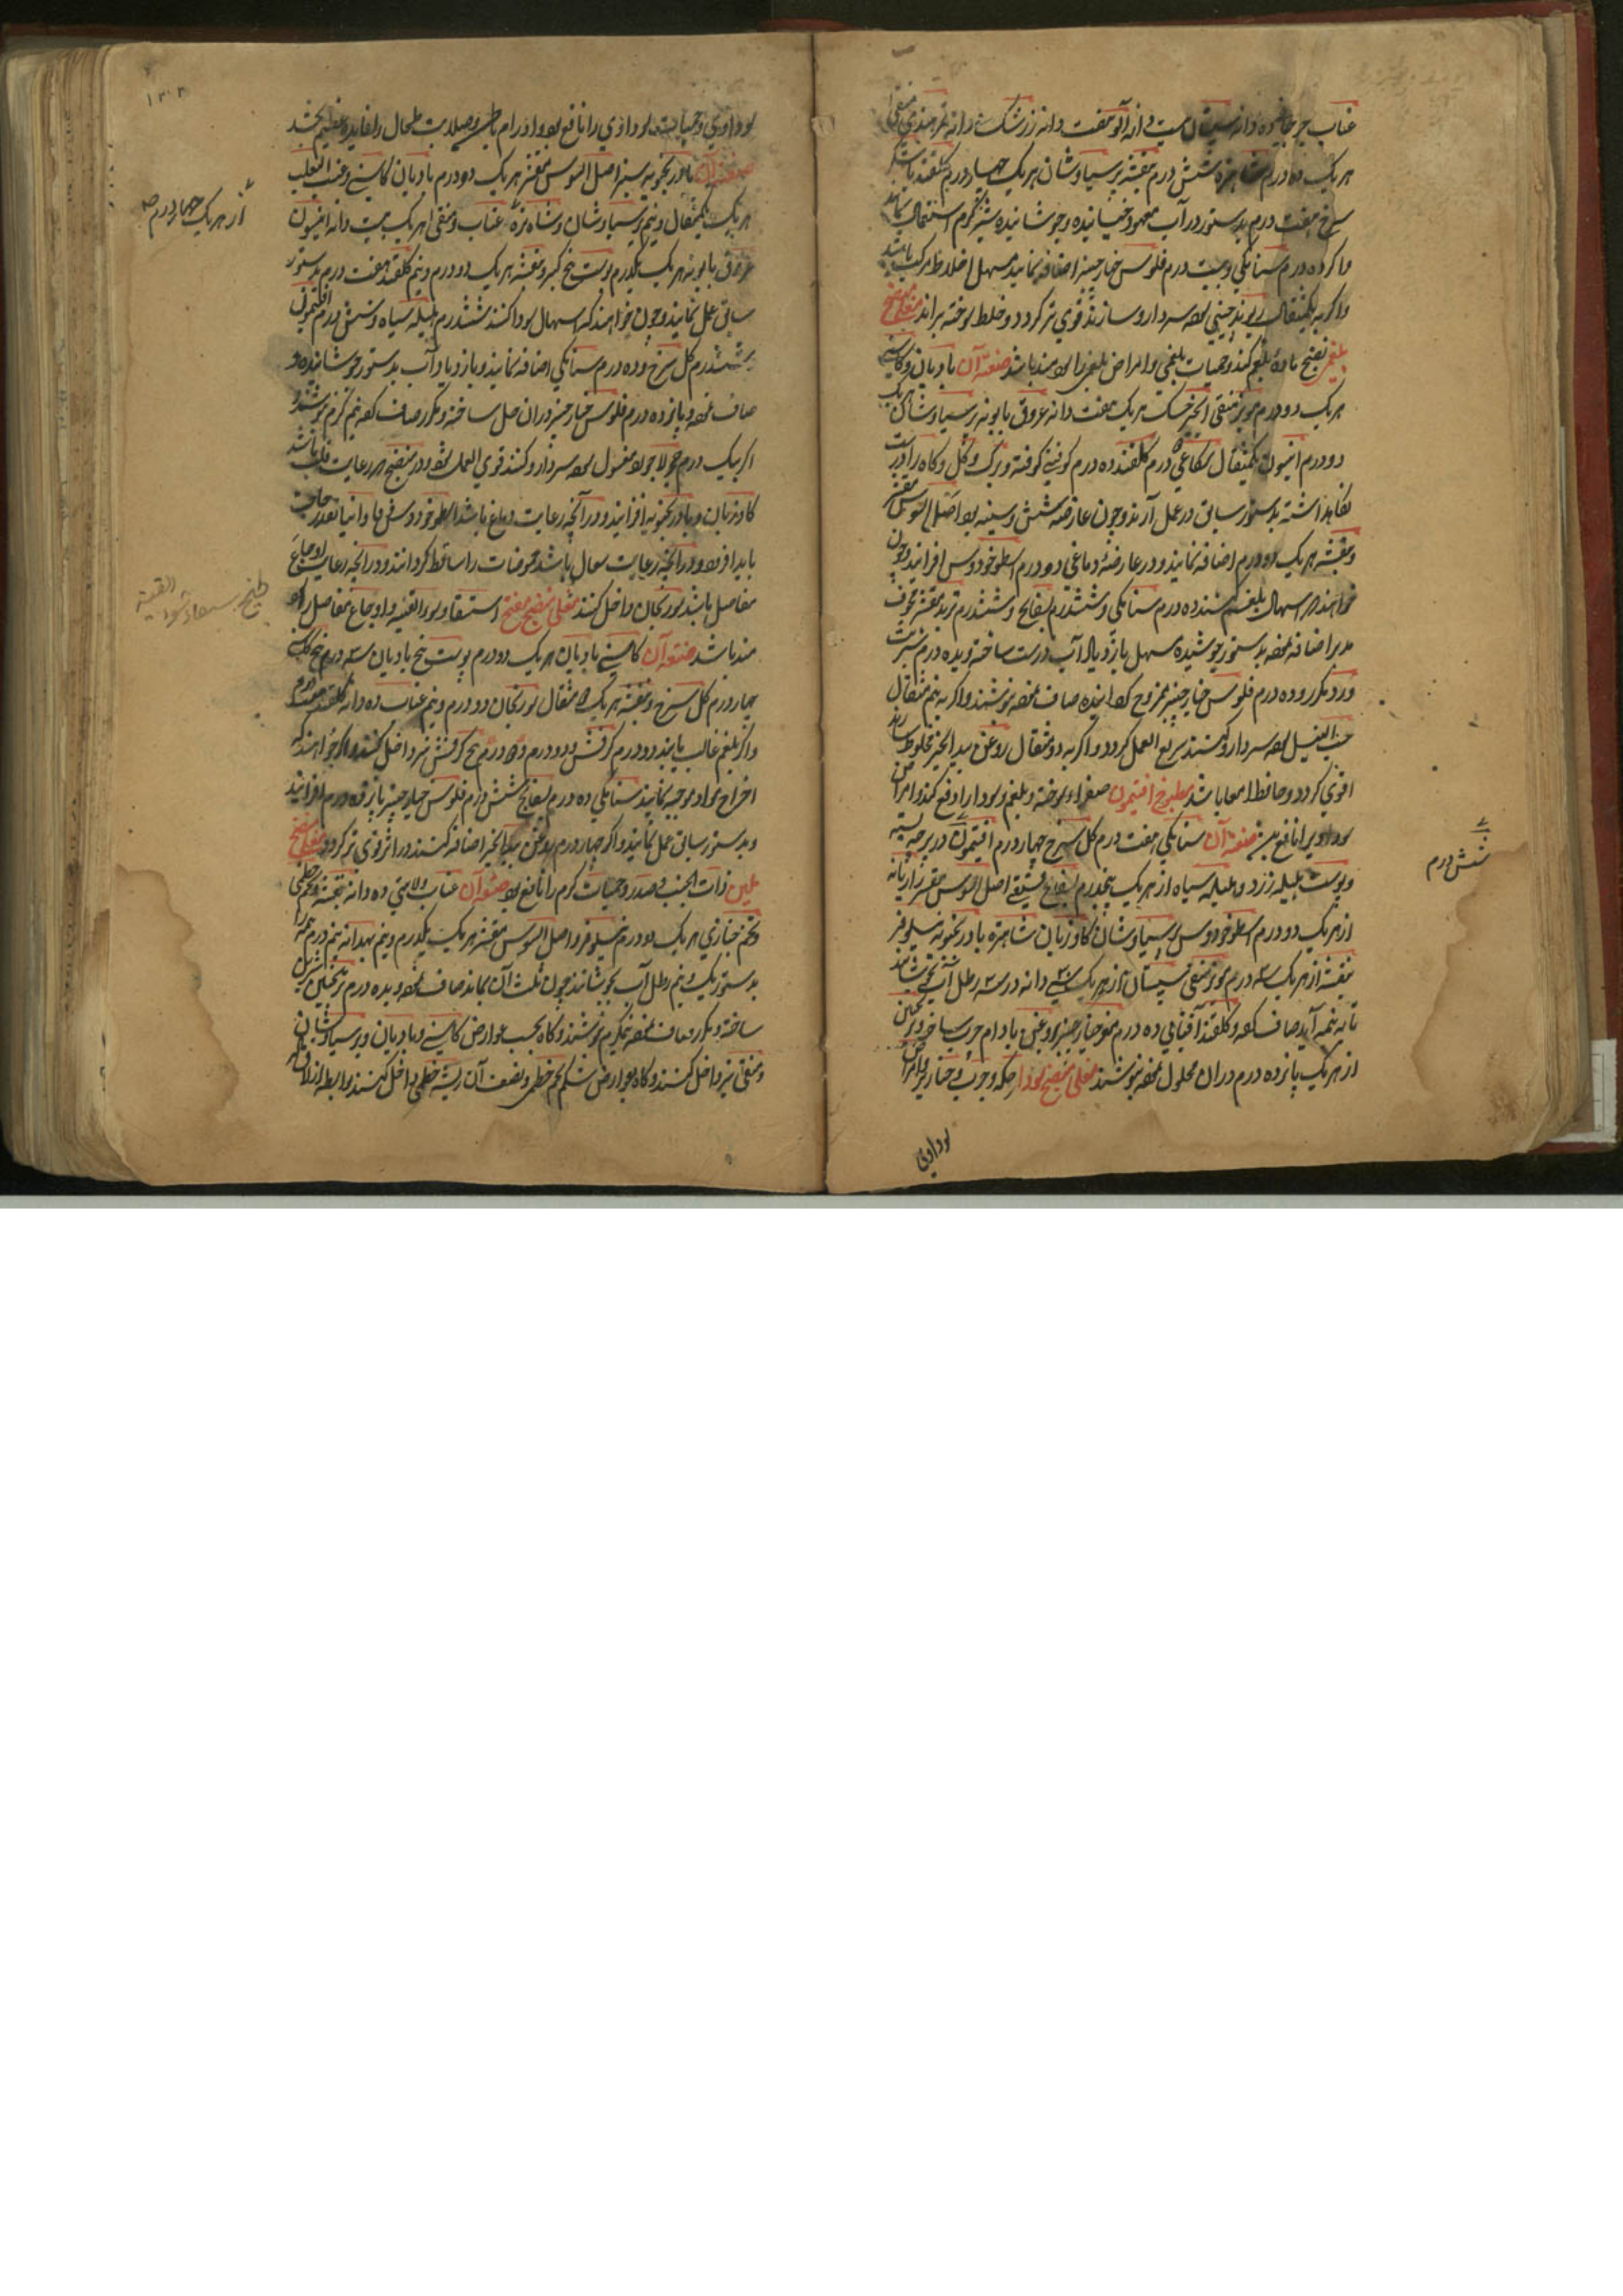 عناب جرجانی ده دانه سپستان بیست دانه آلو هفت دانه زرشک دانه تمرهندی منقی
هر یک ده درم شاهتره شش درم بنفشه پرسیاوشان هر یک چهار درم گلقند با شکر
سرخ هفت درم بدستور در آب معهود خیسانیده و جوشانیده شیر گرم استعمال نمایند
و اگر ده درم سنا مکی و بیست درم فلوس خیارچنبر اضافه نمایند مسهل اخلاط مرکب باشد
و اگر به یکمثقال ریوند چینی سردارو سازند قوی تر گردد و خلط سوخته براند مغلی منضج
بلغمی نضج ماده بلغم کند و حمیات بلغمی و امراض بلغمی را سودمند باشد صنعة آن بادیان و کاسنی
هر یک دو درم مویز منقی انجیر خشک هر یک هفت دانه عروق بابونه پرسیاوشان هر یک
دو درم انیسون یکمثقال شکاعی درم گلقند ده درم کوفتنی کوفته و برگ و گل و کاه را درست
نگاهداشته بدستور سابق در عمل آرند و چون عارضه شش و سینه بود اصل السوس مقشر
و بنفشه هر یک دو درم اضافه نمایند و در عارضه دماغی دو درم اسطوخودوس افزایند و چون
خواهند که اسهال بلغم کنند ده درم سنا مکی و ششدرم بسفایج و ششدرم تربد بنفشه مجوف
مدبر اضافه نموده بدستور جوشیده مسهل بازدیاد آب درست ساخته و بده درم شربت
ورد مکرر و ده درم فلوس خیارچنبر ممزوج گردانیده صاف نموده بنوشند و اگر به نیم مثقال
حب النیل سردارو کنند سریع العمل گردد و اگر به دو مثقال روغن بیدانجیر مخلوط سازند
اقوی گردد و حافظ امعا باشد مطبوخ افتیمون صفراء سوخته و بلغم و سودا را دفع کند و امراض
سوداوی را نافع بود صنعة آن سنا مکی هفت درم گل سرخ چهار درم افتیمون در پرچه بسته
و پوست هلیله زرد و هلیله سیاه از هر یک پنجدرم بسفایج فستقی اصل السوس مقشر رازیانه
از هر یک دو درم اسطوخودوس پرسیاوشان گاوزبان شاهتره بادرنجبویه نیلوفر
بنفشه از هر یک سه درم مویز منقی سپستان از هر یک سی دانه در سه رطل آب بجوشانند
تا به نیمه آید صاف کرده و گلقند آفتابی ده درم مغز خیارچنبر روغن بادام چرب ساخته و ترنجبین
از هر یک پانزده درم در آن محلول نموده بنوشند مغلی منضج سودا حکه و جرب و خنازیر و امراض
سوداوی
شش درم
سوداوی و حمیات سوداوی را نافع بود و اورام باطن و صلابت طحال را فایده عظیم بخشد
صنعة آن بادرنجبویه سبز اصل السوس مقشر هر یک دو درم بادیان کاسنی و عنب الثعلب
هر یک یکمثقال و نیم پرسیاوشان و شاهتره عناب و منقی هر یک بیست دانه انیسون
عروق بابونه هر یک یکدرم پوست بیخ کبر و بنفشه هر یک دو درم و نیم گلقند هفت درم بدستور
سابق عمل نمایند و چون خواهند که اسهال سودا کنند ششدرم هلیله سیاه و شش درم افتیمون
ششدرم گل سرخ و ده درم سنا مکی اضافه نمایند و بازدیاد آب بدستور جوشانیده و
صاف نموده و پانزده درم فلوس خیارچنبر در آن حل ساخته و مکرر صاف کرده نیم گرم بنوشند و
اگر بیک درم حجر لاجورد مغسول سردارو کنند قوی العمل بود و در منضج هر رعایت قلب باشد
گاوزبان و بادرنجبویه افزایند و در آنچه رعایت دماغ باشد اسطوخودوس و فاوانیا بقدر حاجت
باید افزود و در آنچه رعایت سعال باشد حموضات را ساقط گردانند و در آنچه رعایت اوجاع
مفاصل باشد سورنجان داخل کنند مغلی منضج مفتح استسقا و سوء القنیه و اوجاع مفاصل را سود
مند باشد صنعة آن کاسنی بادیان هر یک دو درم پوست بیخ بادیان سه درم بیخ کاسنی
چهار درم گل سرخ و بنفشه هر یک مثقال سورنجان دو درم و نیم عناب ده دانه گلقند هفت درم
و اگر بلغم غالب یابند دو درم کرفس و دو درم بیخ کرفس نیز داخل کنند و اگر خواهند که
اخراج مواد موجبه نمایند سنا مکی ده درم بسفایج شش درم فلوس خیارچنبر پانزده درم افزایند
و بدستور سابق عمل نمایند و اگر چهار درم روغن بیدانجیر اضافه کنند در اثر قوی تر گردد مغلی منضج
ملین ذات الجنب و صدر و حمیات گرم را نافع بود صنعة آن عناب ولایتی ده دانه بنفشه و خطمی
و تخم خبازی هر یک دو درم نیلوفر و اصل السوس مقشر هر یک یکدرم و نیم بهدانه نیم درم همه را
بدستور یک و نیم رطل آب بجوشانند چون ثلث آن بماند صاف نموده و بده درم ترنجبین شیرین
ساخته و مکرر صاف نموده نیمگرم بنوشند و گاه بحسب عوارض کاسنی و بادیان و پرسیاوشان
و منقی نیز داخل کنند و گاه بعوارض شکم تخم خطمی و نصف آن ریشه خطمی داخل کنند
از هر یک چهار درم
طبیخ سوء القنیه